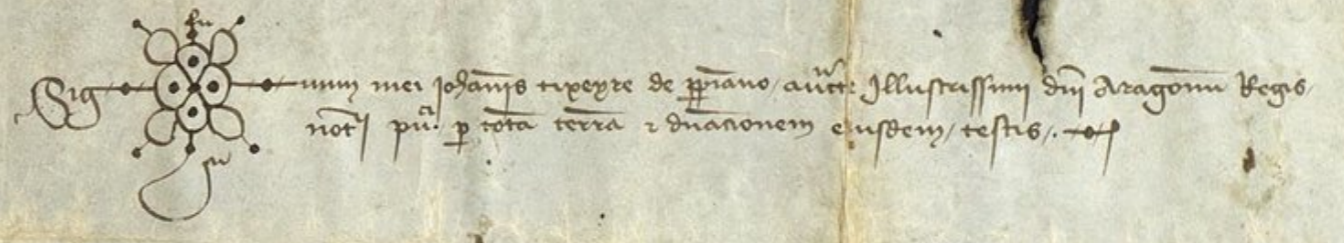 Sig num mei Joħanis tixeyre de ꝑpiano / auctte Illustrissimi dnĩ Aragonũ Regis /
notȷ puͥ. ꝑ totã terrã ⁊ dnãcionem eiusdem / testis /.